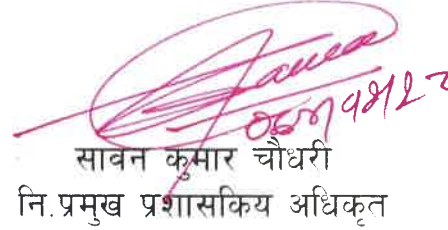 सावन कुमार चौधरी
नि.प्रमुख प्रशासकिय अधिकृत